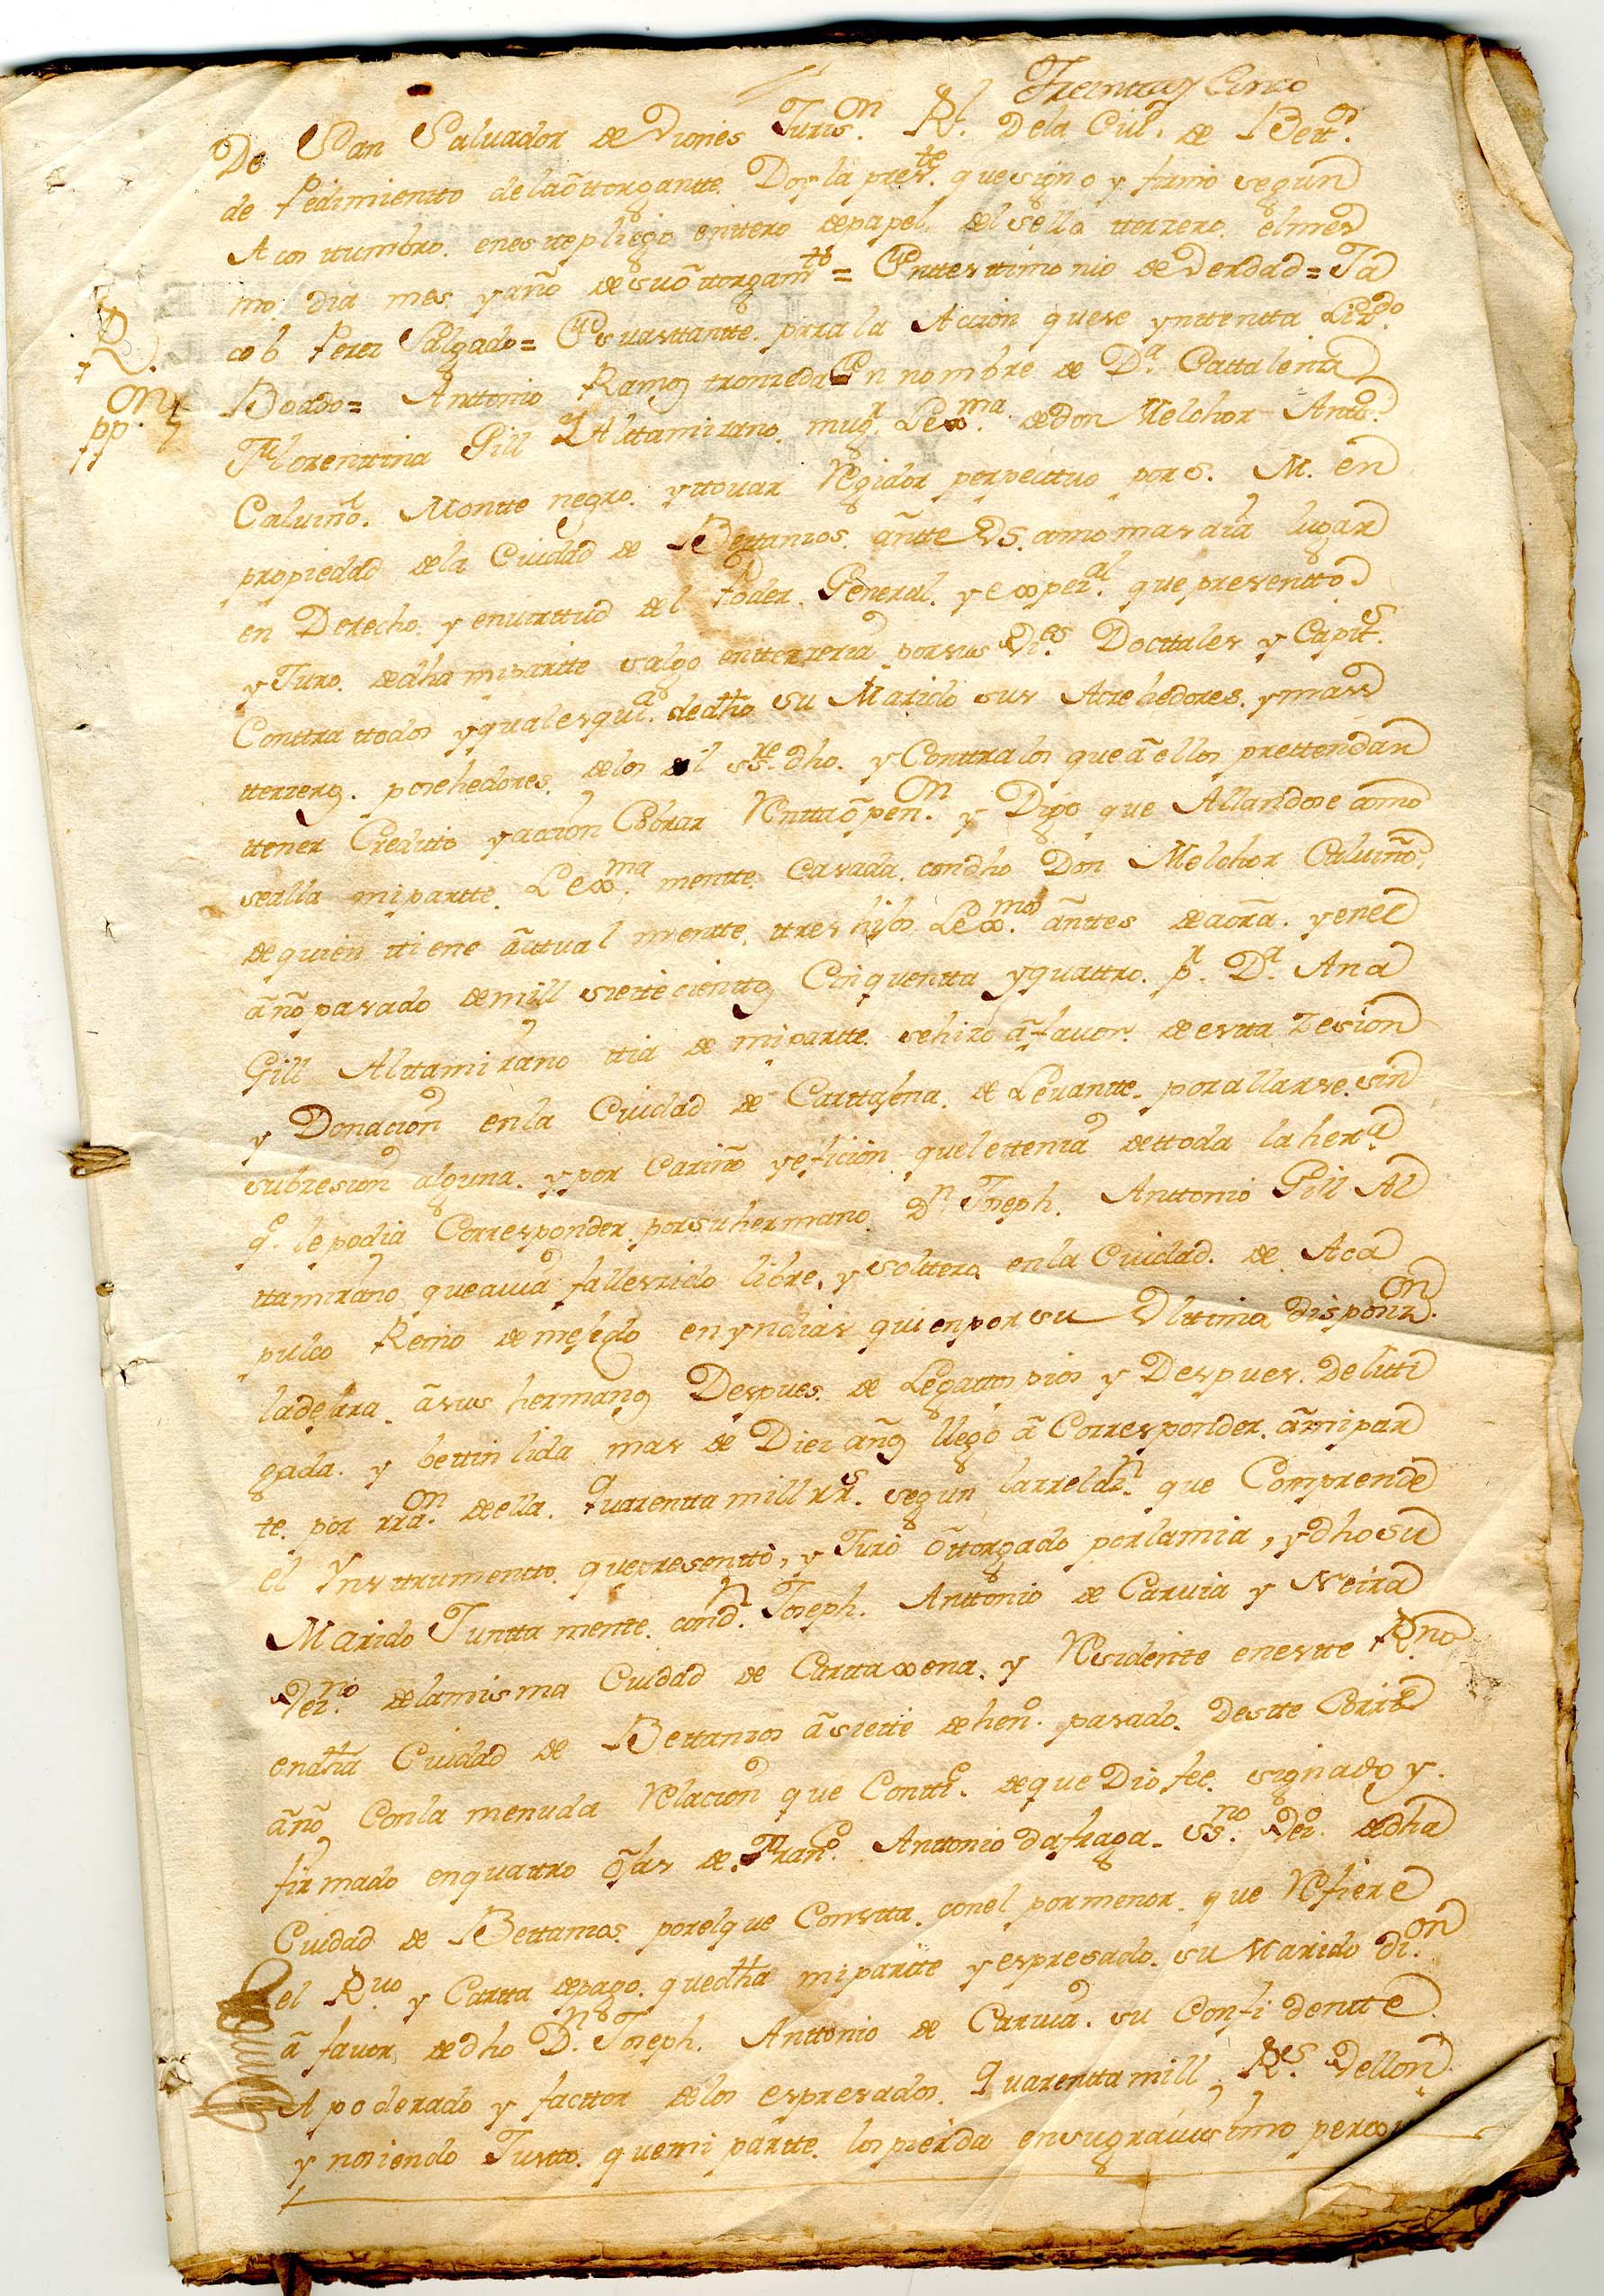 Treintay Cinco
De San Saluador de Viones Juris.on Rl. Dela Ciud. de Bett.s
de Pedimientto delaõttorgantte. Doy la pres.te que signo y firmo segun
Acosttumbro. enesttepliego enttero depapel. del Sello tterzero. elmes
mo. dia mes yaño desuõttorgam.to = Enttesttimonio de Verdad = Ja
cob Perez Salgado = Es uasttantte. para la Accion quese ynttentta Liz.do
Boado = Anttonio Ramos tronzeda En nombre de D.a Cattalenia
R.
On
pp.
Florenttina Gill Alttamirano. mug.r Lex.ma dedon Melchor Antt.o
Caluiño. Montte negro. yttouar Regidor perpettuo por S. M. en
propiedad dela Ciudad de Bettanzos. ãntte VS. comomasdia lugar
en Derecho. y enuirttud del Poder. General. y expez.al que presentto
y Juro. dedha miparitte salgo entterzeria porsus Vi.es Dottales y Capit.s
Conttra ttodos yqualesqui.a dedtho su Marido sus Acrehedores. ymass
tterzeros. posehedores. delos del ss.re dho. y Conttralos queãellos prettendan
ttener Creditto yaccion Cobrar Renttaõpen.on y Digo que Allandose como
sealla miparte. Lex.ma mentte. Casada. condho Don Melchor Caluiño.
dequien ttiene ãcttual mentte. ttres hijos Lex.mos ãnttes deaora. yenel
ãño pasado demill siettecienttos Cinquentta yquattro. p.r D.a Ana
Gill Alttamirano ttia de miparte. sehizo ãfauor. deestta Zesion
y Donacion enla Ciudad de Carttagena. de Leuantte. porallarse. sin
subcesion alguna. ypor Cariño yeficion quelettenia dettoda la her.a
q.e lepodia Corresponder porsuhermano. D.n Joseph. Anttonio Gill Al
ttamirano queauia falleszido libre. y solttero enla Ciudad. de Aca
pulco Reino demejico enyndias quienporsu Vlttima disposiz.on
ladejara. ãsus hermanos Despues. de Legattos pios y Despues. Delitti
gada. y bettinlida mas de Diez años llegó ã Corresponder. ãmipar
te. por rra.on deella. quarentta mill rr.s segun larrelaz.n que Comprende
el Ynsttrumentto quepresentto, y Juro õttorgado porlamia, ydhosu
Marido Juntta mente. conD.n Joseph. Anttonio de Caruia y Neira
Vez.no delamisma Ciudad de Carttaxena. y Residente enestte R.no
endtha Ciudad de Bettanzos ãsiette dehen.o pasado. Destte Corr.te
ãño Conla menuda Relacion que Conti.e deque Dio fee. signado y.
firmado enquattro õjas de Fran.co Anttonio dafraga. ss.no Vez.o dedha
Ciudad de Bettanzos. porelque Constta. conel pormenor. que Refiere
el R.uo y Cartta depago. quedtha miparitte yespresado. su Marido di.on
ã fauor dedho D.n Joseph. Anttonio de Caruia. su Confidentte
Apoderado y facttor delos espresados. quarenttamill R.es Vellon.
y nosiendo Justto. quemi partte. lospierda ensugrauissimo